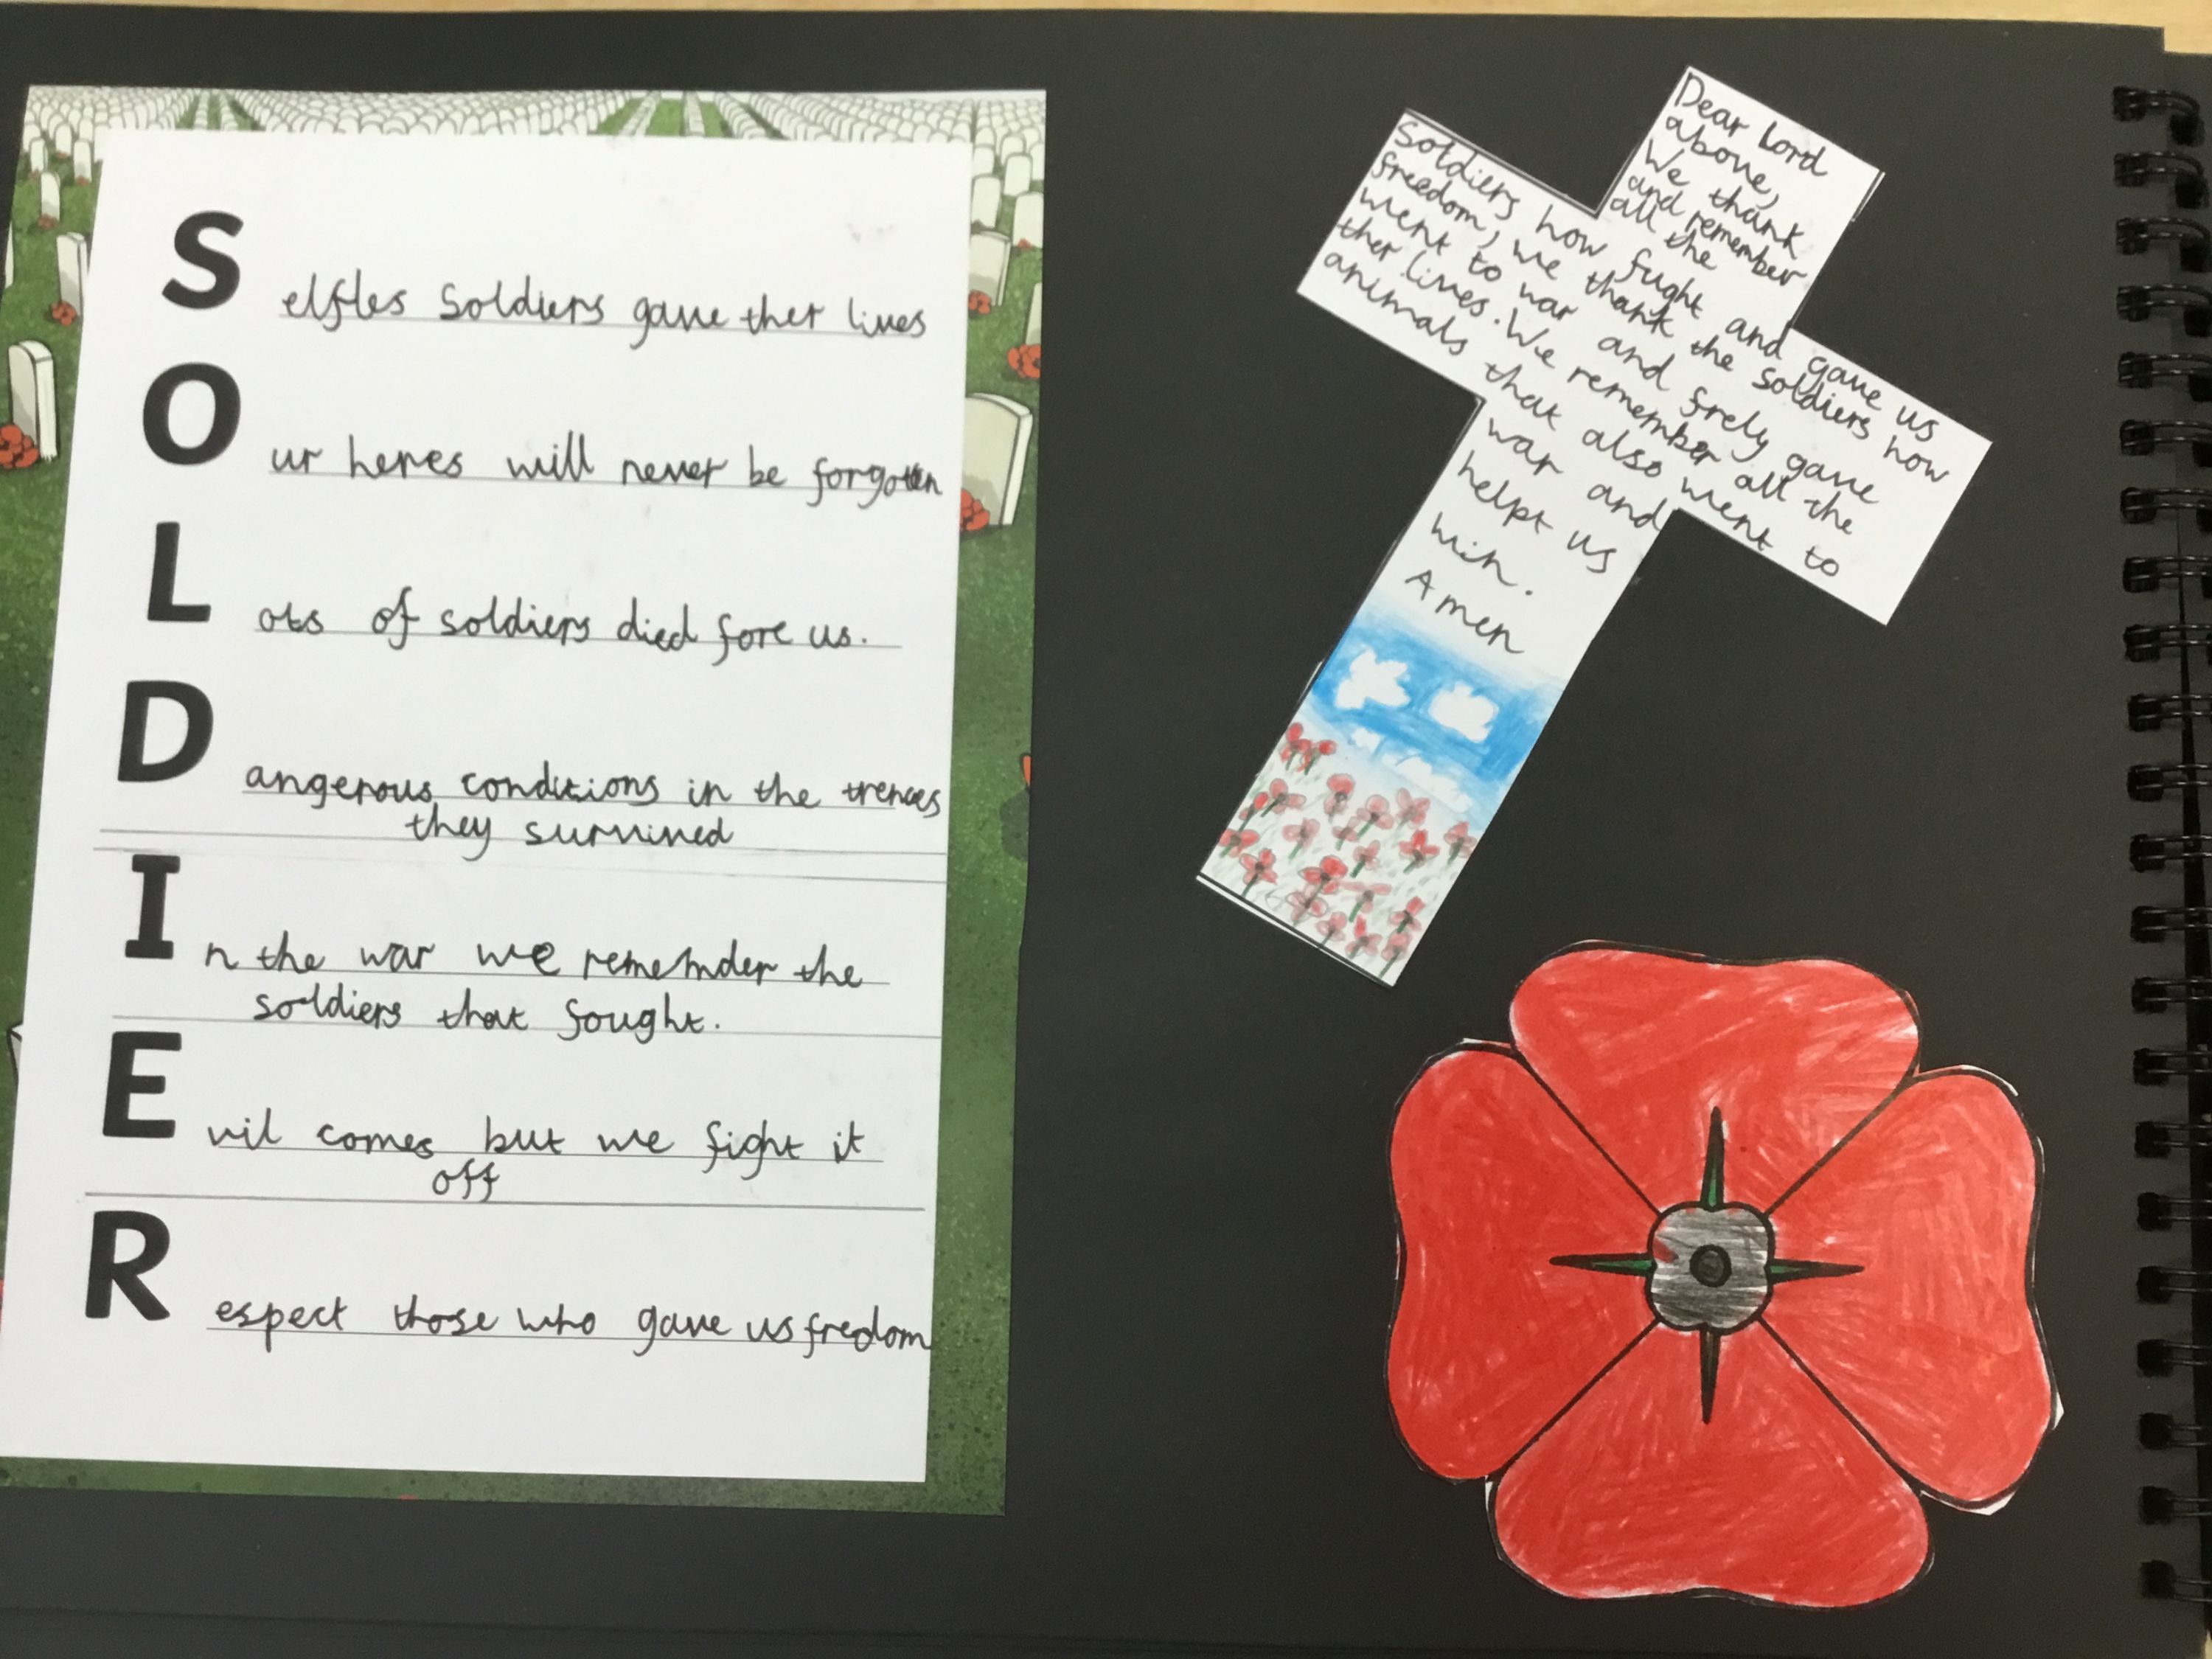 Selfles Soldiers gave ther lives
Our heres will never be forgotten
Lots of soldiers died fore us.
Dangerous conditions in the trences
they survived
In the war we rememder the
soldiers that fought.
Evil comes but we fight it
off
Respect those who gave us fredom
Dear Lord
above,
We thank
and remember
all the
soldiers how fught and gave us
freedom, we thank the soldiers how
went to war and frely gave
ther lives. We remember all the
animals that also went to
war and
helpt us
win.
Amen